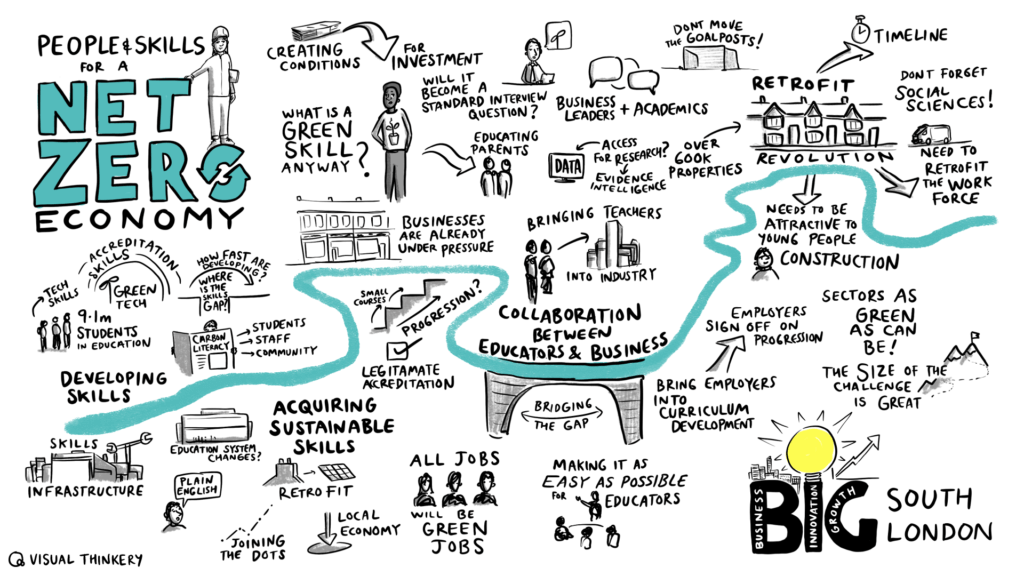 PEOPLE & SKILLS
FOR A
NET
ZERO
ECONOMY
CREATING
CONDITIONS
FOR
INVESTMENT
WHAT IS A
GREEN
SKILL
ANYWAY?
WILL IT
BECOME A
STANDARD INTERVIEW
QUESTION?
EDUCATING
PARENTS
BUSINESS
LEADERS + ACADEMICS
DONT MOVE
THE GOALPOSTS!
DATA
ACCESS
FOR RESEARCH?
EVIDENCE
INTELLIGENCE
OVER
600K
PROPERTIES
RETROFIT
REVOLUTION
TIMELINE
DONT FORGET
SOCIAL
SCIENCES!
NEED TO
RETROFIT
THE WORK
FORCE
NEEDS TO BE
ATTRACTIVE TO
YOUNG PEOPLE
CONSTRUCTION
BUSINESSES
ARE ALREADY
UNDER PRESSURE
BRINGING TEACHERS
INTO INDUSTRY
ACCREDITATION
SKILLS
TECH
SKILLS
GREEN
TECH
9.1m
STUDENTS
IN EDUCATION
HOW FAST ARE
DEVELOPING?
WHERE
IS THE
SKILLS
GAP?
CARBON
LITERACY
STUDENTS
STAFF
COMMUNITY
DEVELOPING
SKILLS
SMALL
COURSES
PROGRESSION?
LEGITAMATE
ACCREDITATION
COLLABORATION
BETWEEN
EDUCATORS & BUSINESS
BRIDGING
THE GAP
EMPLOYERS
SIGN OFF ON
PROGRESSION
BRING EMPLOYERS
INTO
CURRICULUM
DEVELOPMENT
SECTORS AS
GREEN
AS CAN
BE!
THE SIZE OF THE
CHALLENGE
IS GREAT
SKILLS
INFRASTRUCTURE
EDUCATION SYSTEM
CHANGES?
PLAIN
ENGLISH
ACQUIRING
SUSTAINABLE
SKILLS
RETROFIT
LOCAL
ECONOMY
JOINING
THE DOTS
ALL JOBS
WILL BE
GREEN
JOBS
MAKING IT AS
EASY AS POSSIBLE
FOR EDUCATORS
BIG
BUSINESS
INNOVATION
GROWTH
SOUTH
LONDON
VISUAL THINKERY